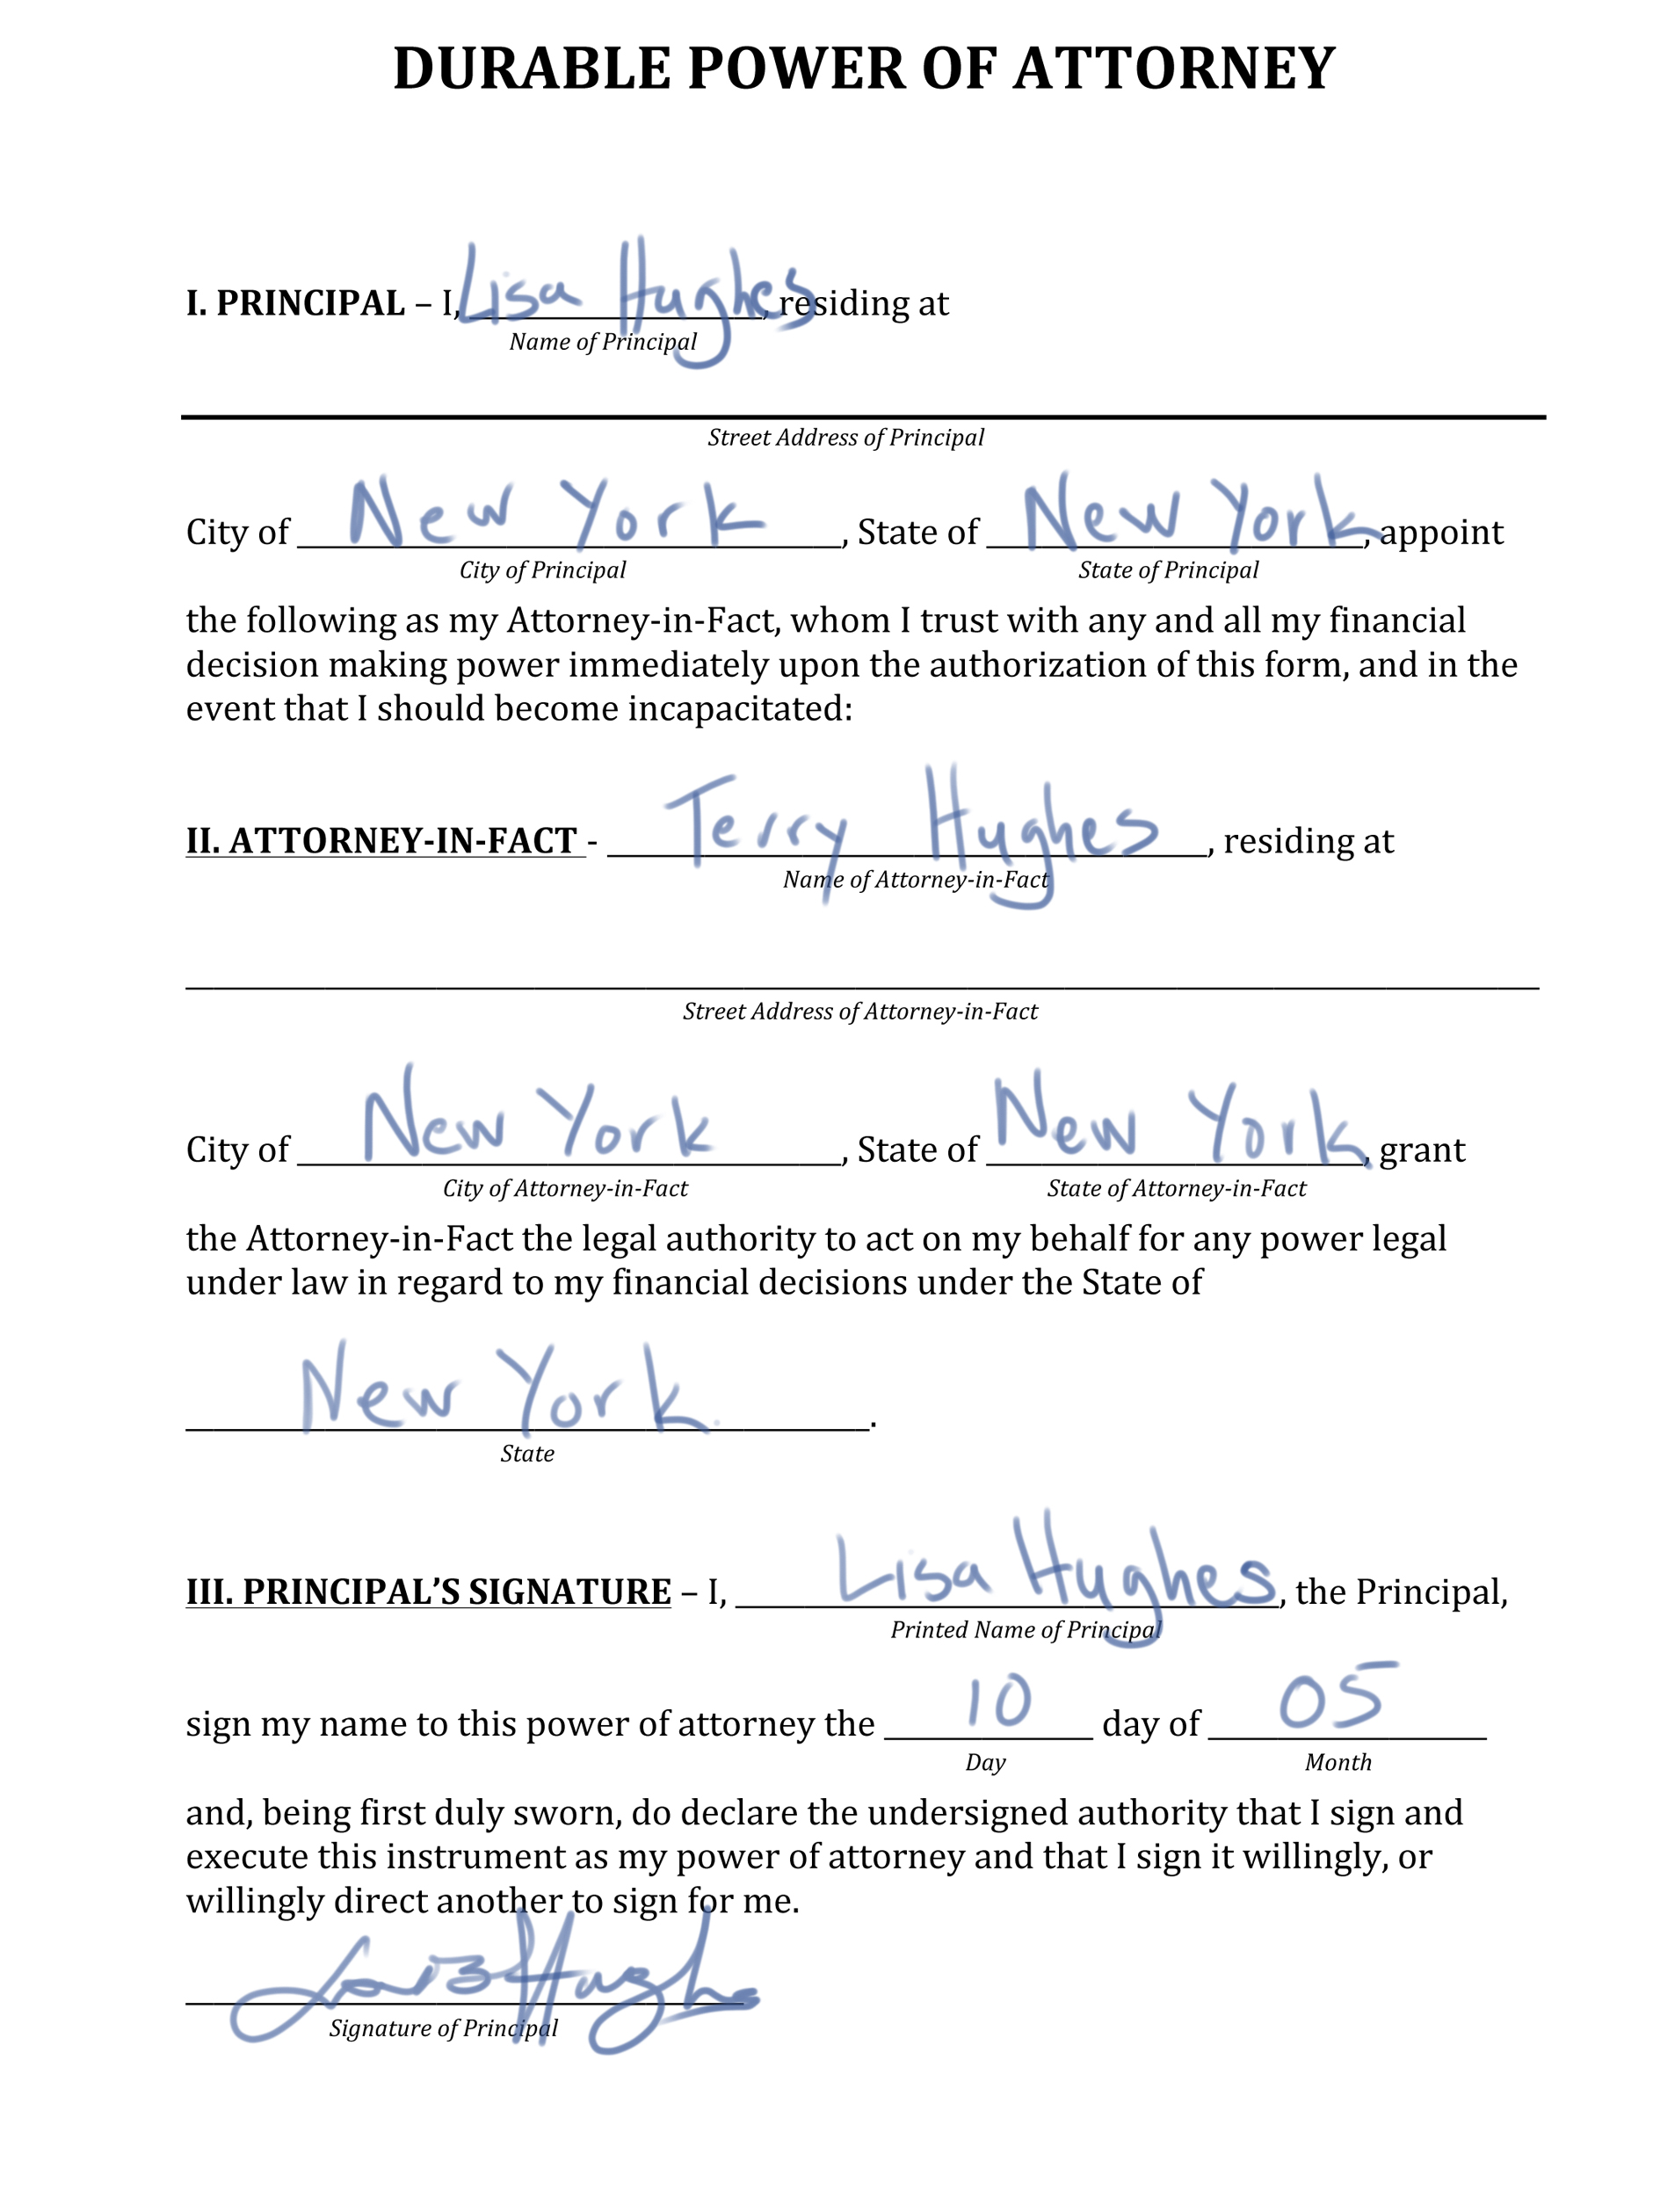 DURABLE POWER OF ATTORNEY
I. PRINCIPAL – I, Lisa Hughes, residing at
Name of Principal
Street Address of Principal
City of New York, State of New York, appoint
City of Principal State of Principal
the following as my Attorney-in-Fact, whom I trust with any and all my financial
decision making power immediately upon the authorization of this form, and in the
event that I should become incapacitated:
II. ATTORNEY-IN-FACT - Terry Hughes, residing at
Name of Attorney-in-Fact
Street Address of Attorney-in-Fact
City of New York, State of New York, grant
City of Attorney-in-Fact State of Attorney-in-Fact
the Attorney-in-Fact the legal authority to act on my behalf for any power legal
under law in regard to my financial decisions under the State of
New York.
State
III. PRINCIPAL’S SIGNATURE – I, Lisa Hughes, the Principal,
Printed Name of Principal
sign my name to this power of attorney the 10 day of 05
Day Month
and, being first duly sworn, do declare the undersigned authority that I sign and
execute this instrument as my power of attorney and that I sign it willingly, or
willingly direct another to sign for me.
Signature of Principal